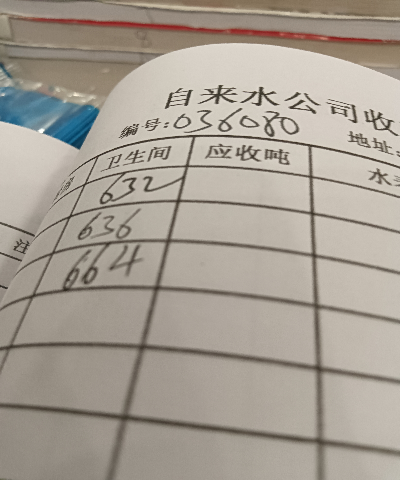 自来水公司收
编号:036080 地址:
间 卫生间 应收吨 水
632
注 636
664